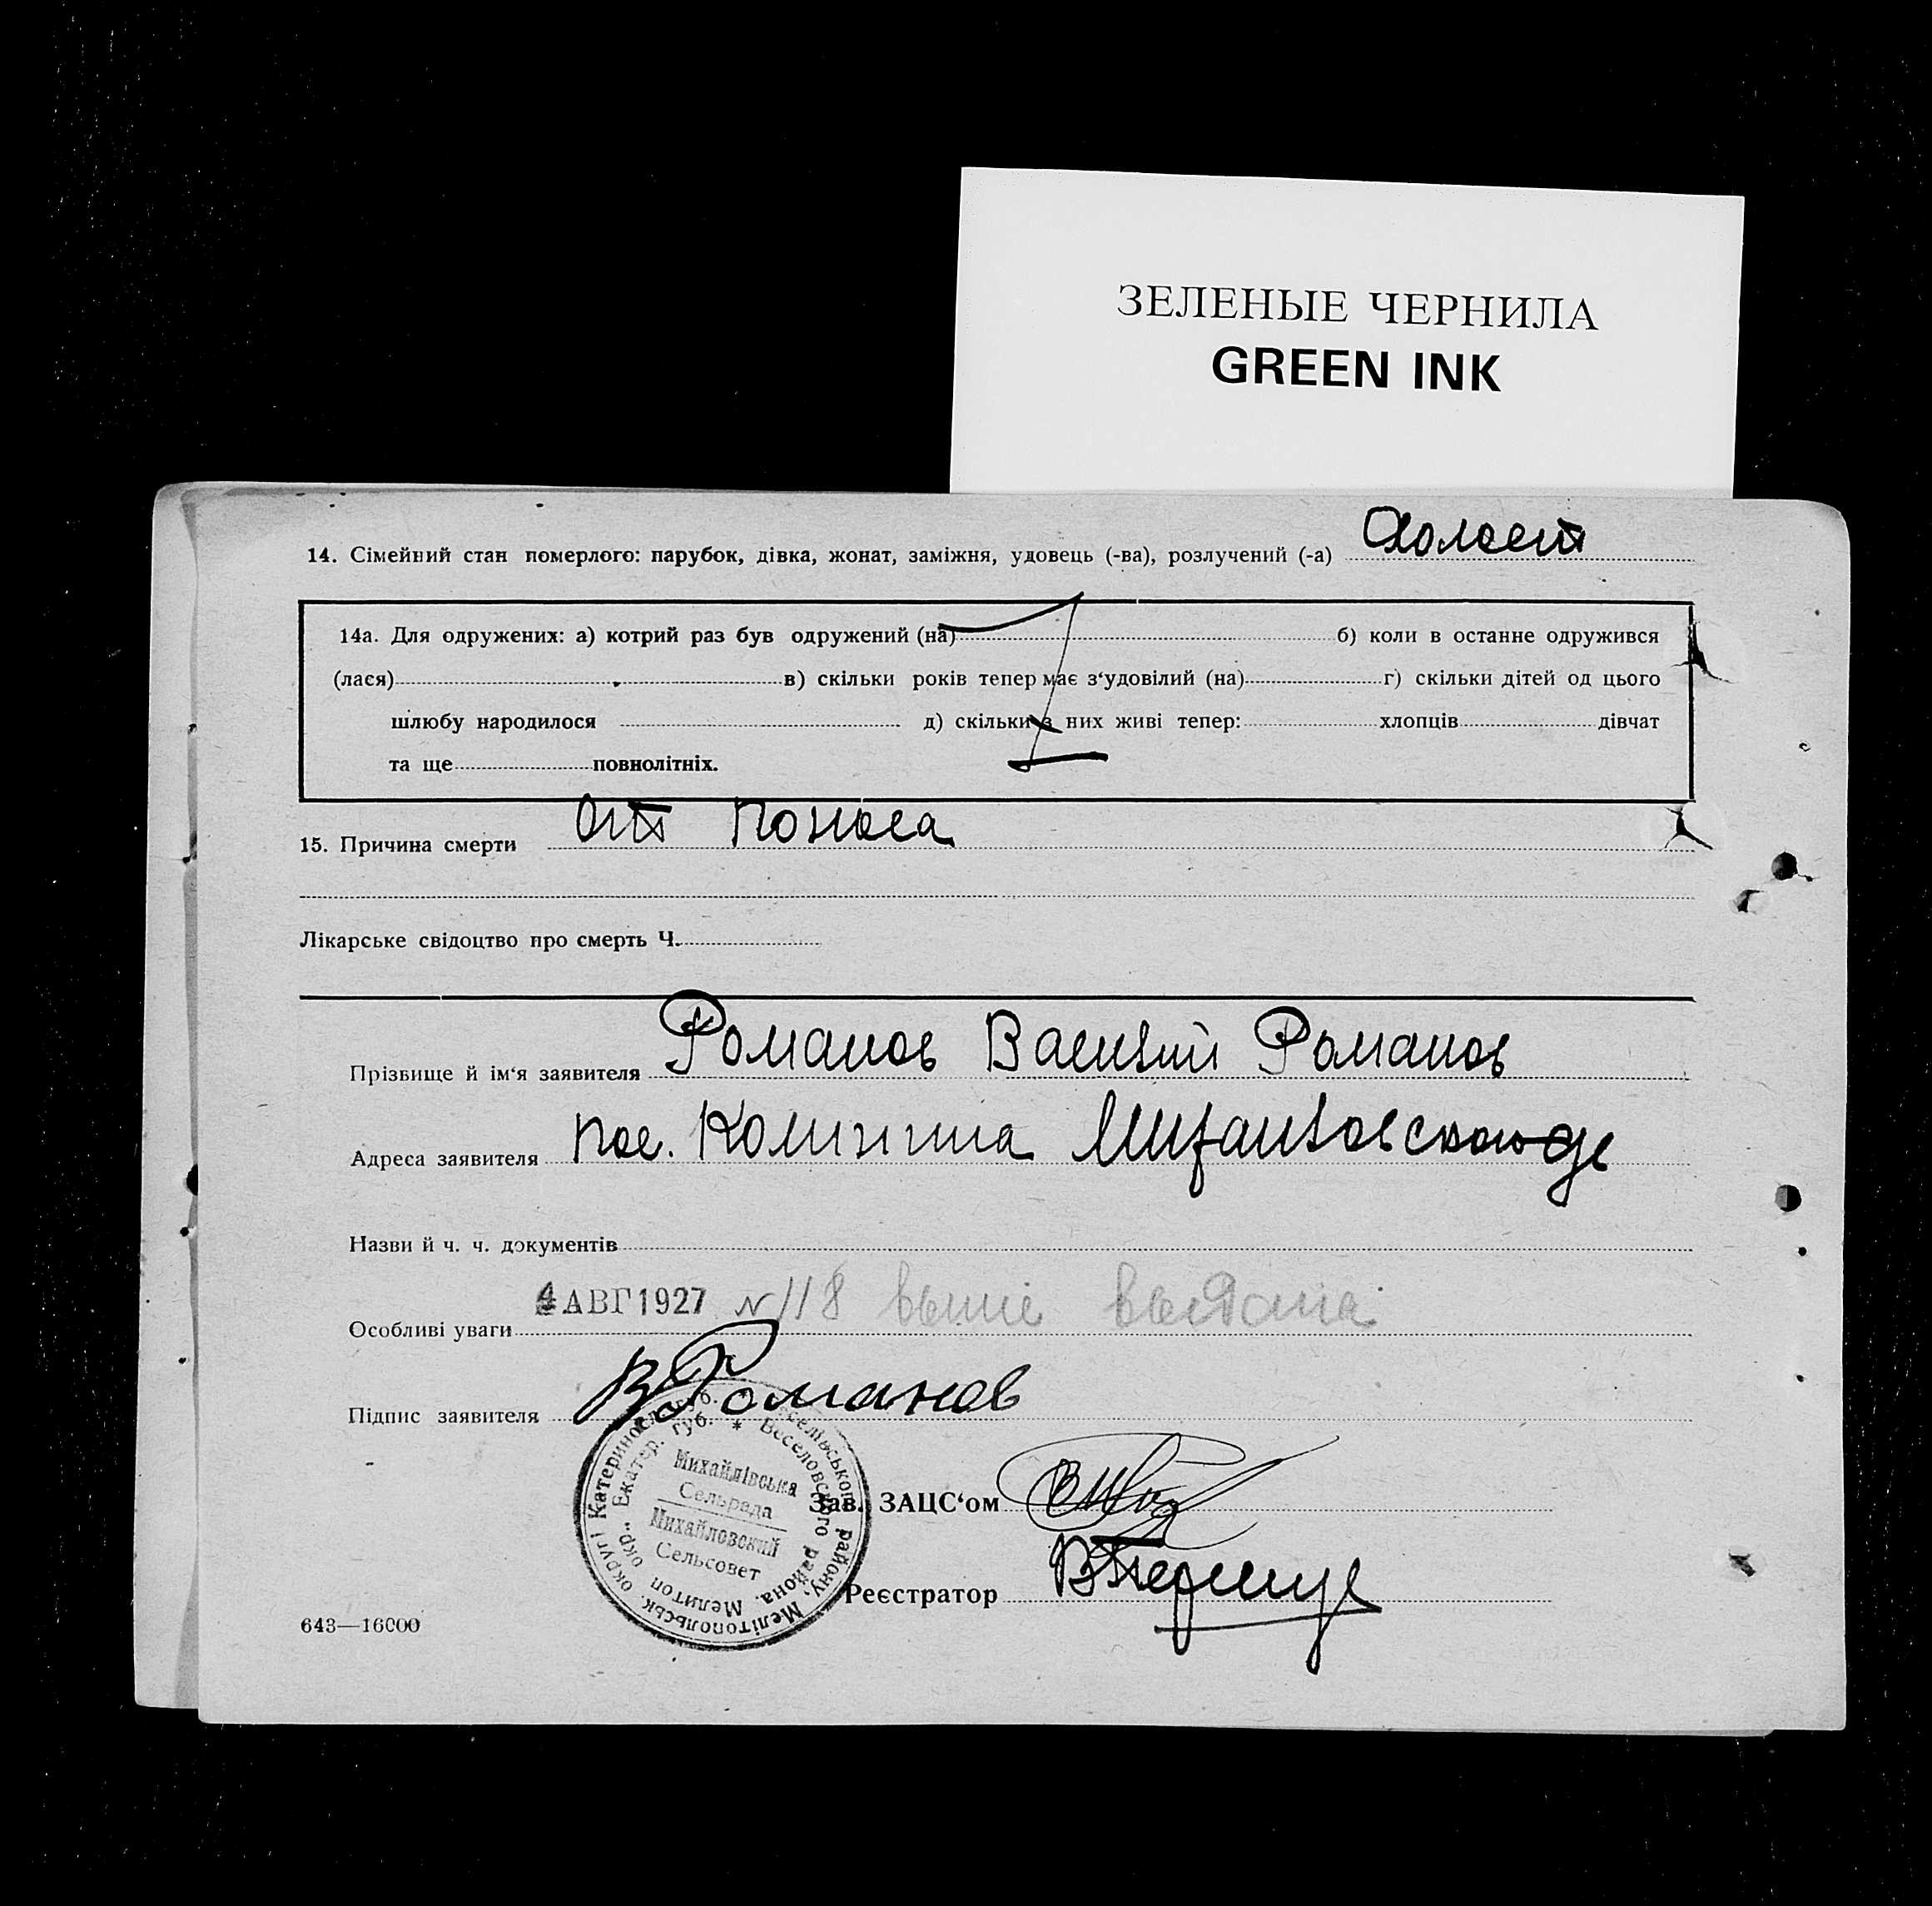 ЗЕЛЕНЫЕ ЧЕРНИЛА
GREEN INK
14. Сімейний стан померлого: парубок, дівка, жонат, заміжня, удовець (-ва), розлучений (-а) Холост
14а. Для одружених: а) котрий раз був одружений (на) б) коли в останне одружився
(лася) в) скільки років тепер має з‘удовілий (на) г) скільки дітей од цього
шлюбу народилося д) скільки з них живі тепер: хлопців дівчат
та ще повнолітніх.
15. Причина смерти от Поноса
Лікарське свідоцтво про смерть Ч.
Прізвище й ім‘я заявителя Романов Василий Романов
Адреса заявителя пос. Калинина
Назви й ч. ч. документів
4 АВГ 1927 N 118
Особливі уваги
Підпис заявителя ВРоманов
Михайлівська
Сельрада
Михайловский
Сельсовет
Зав. ЗАЦС‘ом
Реєстратор
643—16000